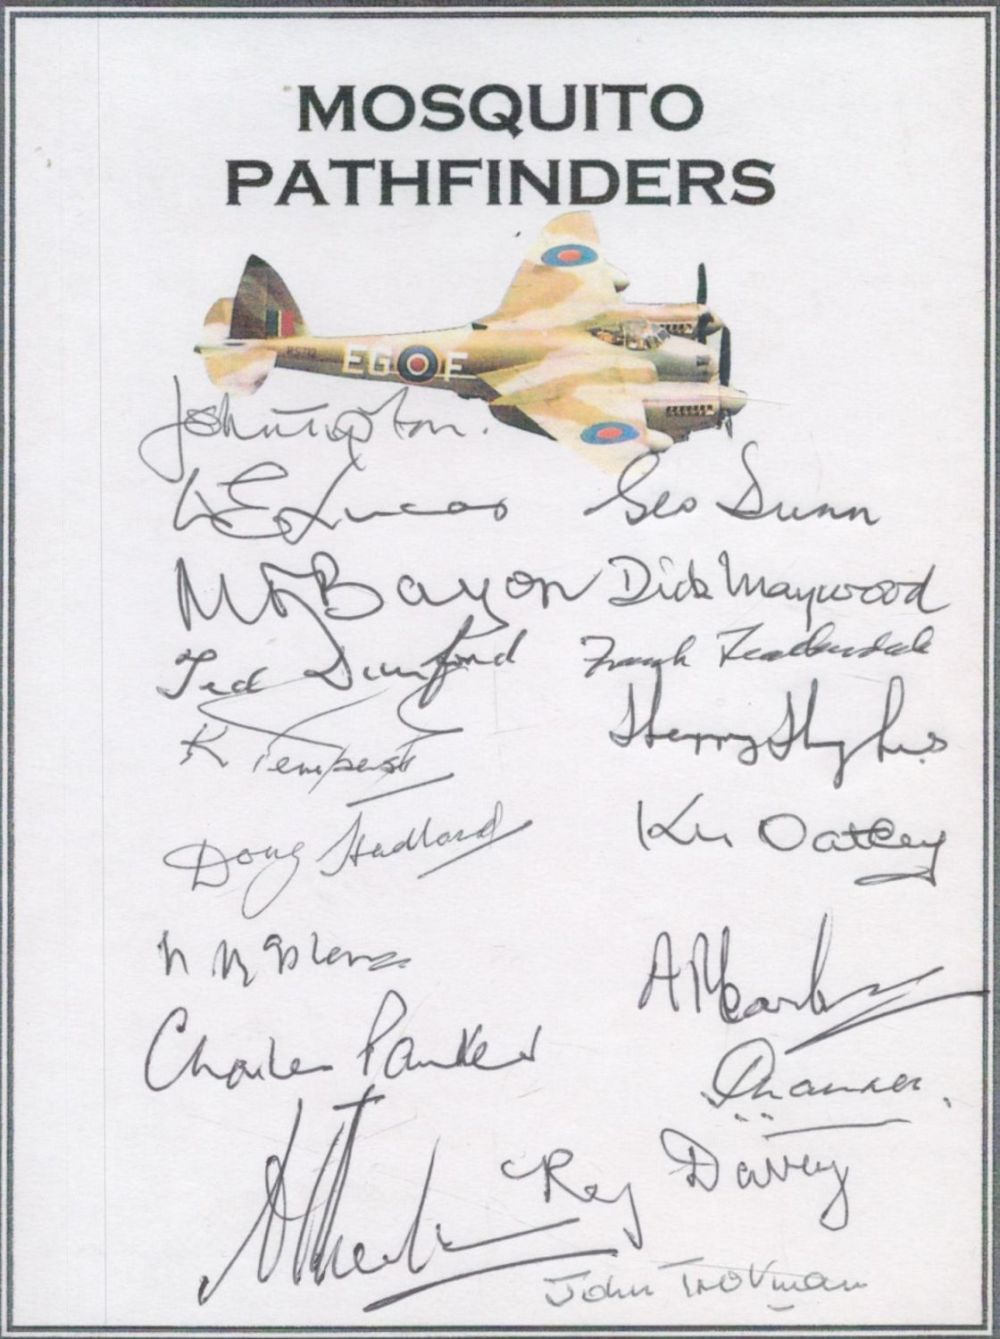 MOSQUITO
PATHFINDERS
RS712 EG F
John Tipton.
W E Lucas
Geo Dunn
M F Bayon
Dick Maywood
Ted Dunford
Frank
K Tempest
Harry Hughes
Doug Hadland
Ken Oatley
Charles Parker
Reg Davey
John Trotman